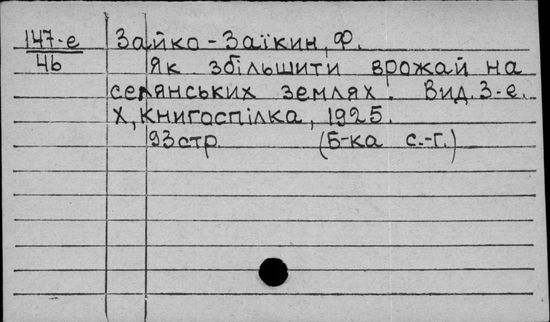 147-е
4b
Зайко-Заїкин, Ф.
Як збільшити врожай на
селянських землях. Вид. 3-е.
Х, Книгоспілка, 1925.
93стр (Б-ка с.-г.)